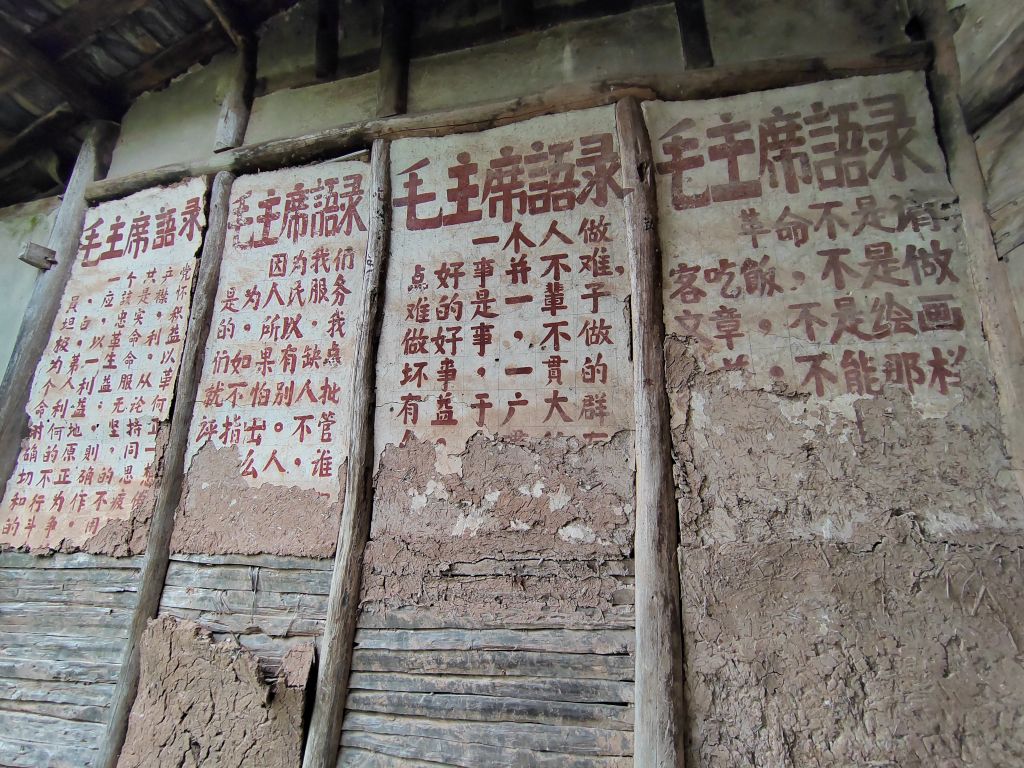 毛主席語录
一个共产党
員，应該是襟怀
坦白，忠实，积
极，以革命利益
为第一生命，以
个人利益服从
命利益。无论何
时何地，坚持正
确的原則，同一
切不正确的思想
和行为作不疲倦
的斗争，用
毛主席語录
因为我们
是为人民服务
的，所以，我
们如果有缺点
就不怕别人批
评指出。不管
么人，谁
毛主席語录
一个人做
点好事并不难，
难的是一輩子
做好事，不做
坏事，一貫的
有益于广大群
毛主席語录
革命不是
客吃飯，不是做
文章，不是绘画
不能那样